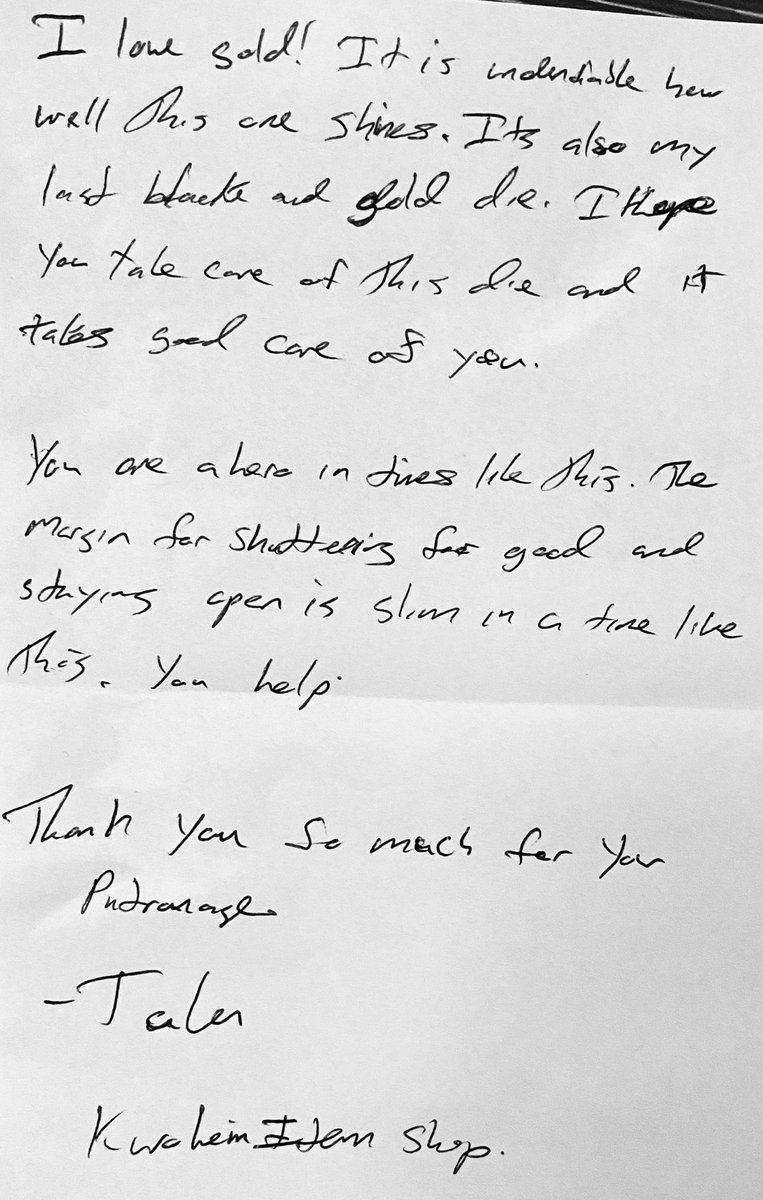 I love gold! It is undeniable how
well this one shines. Its also my
last black and gold die. I hope
you take care of this die and it
takes good care of you.
You are a hero in times like this. The
margin for shuttering for good and
staying open is slim in a time like
this. You help.
Thank you so much for your
Patronage.
-Talen
Kwahein Item Shop.